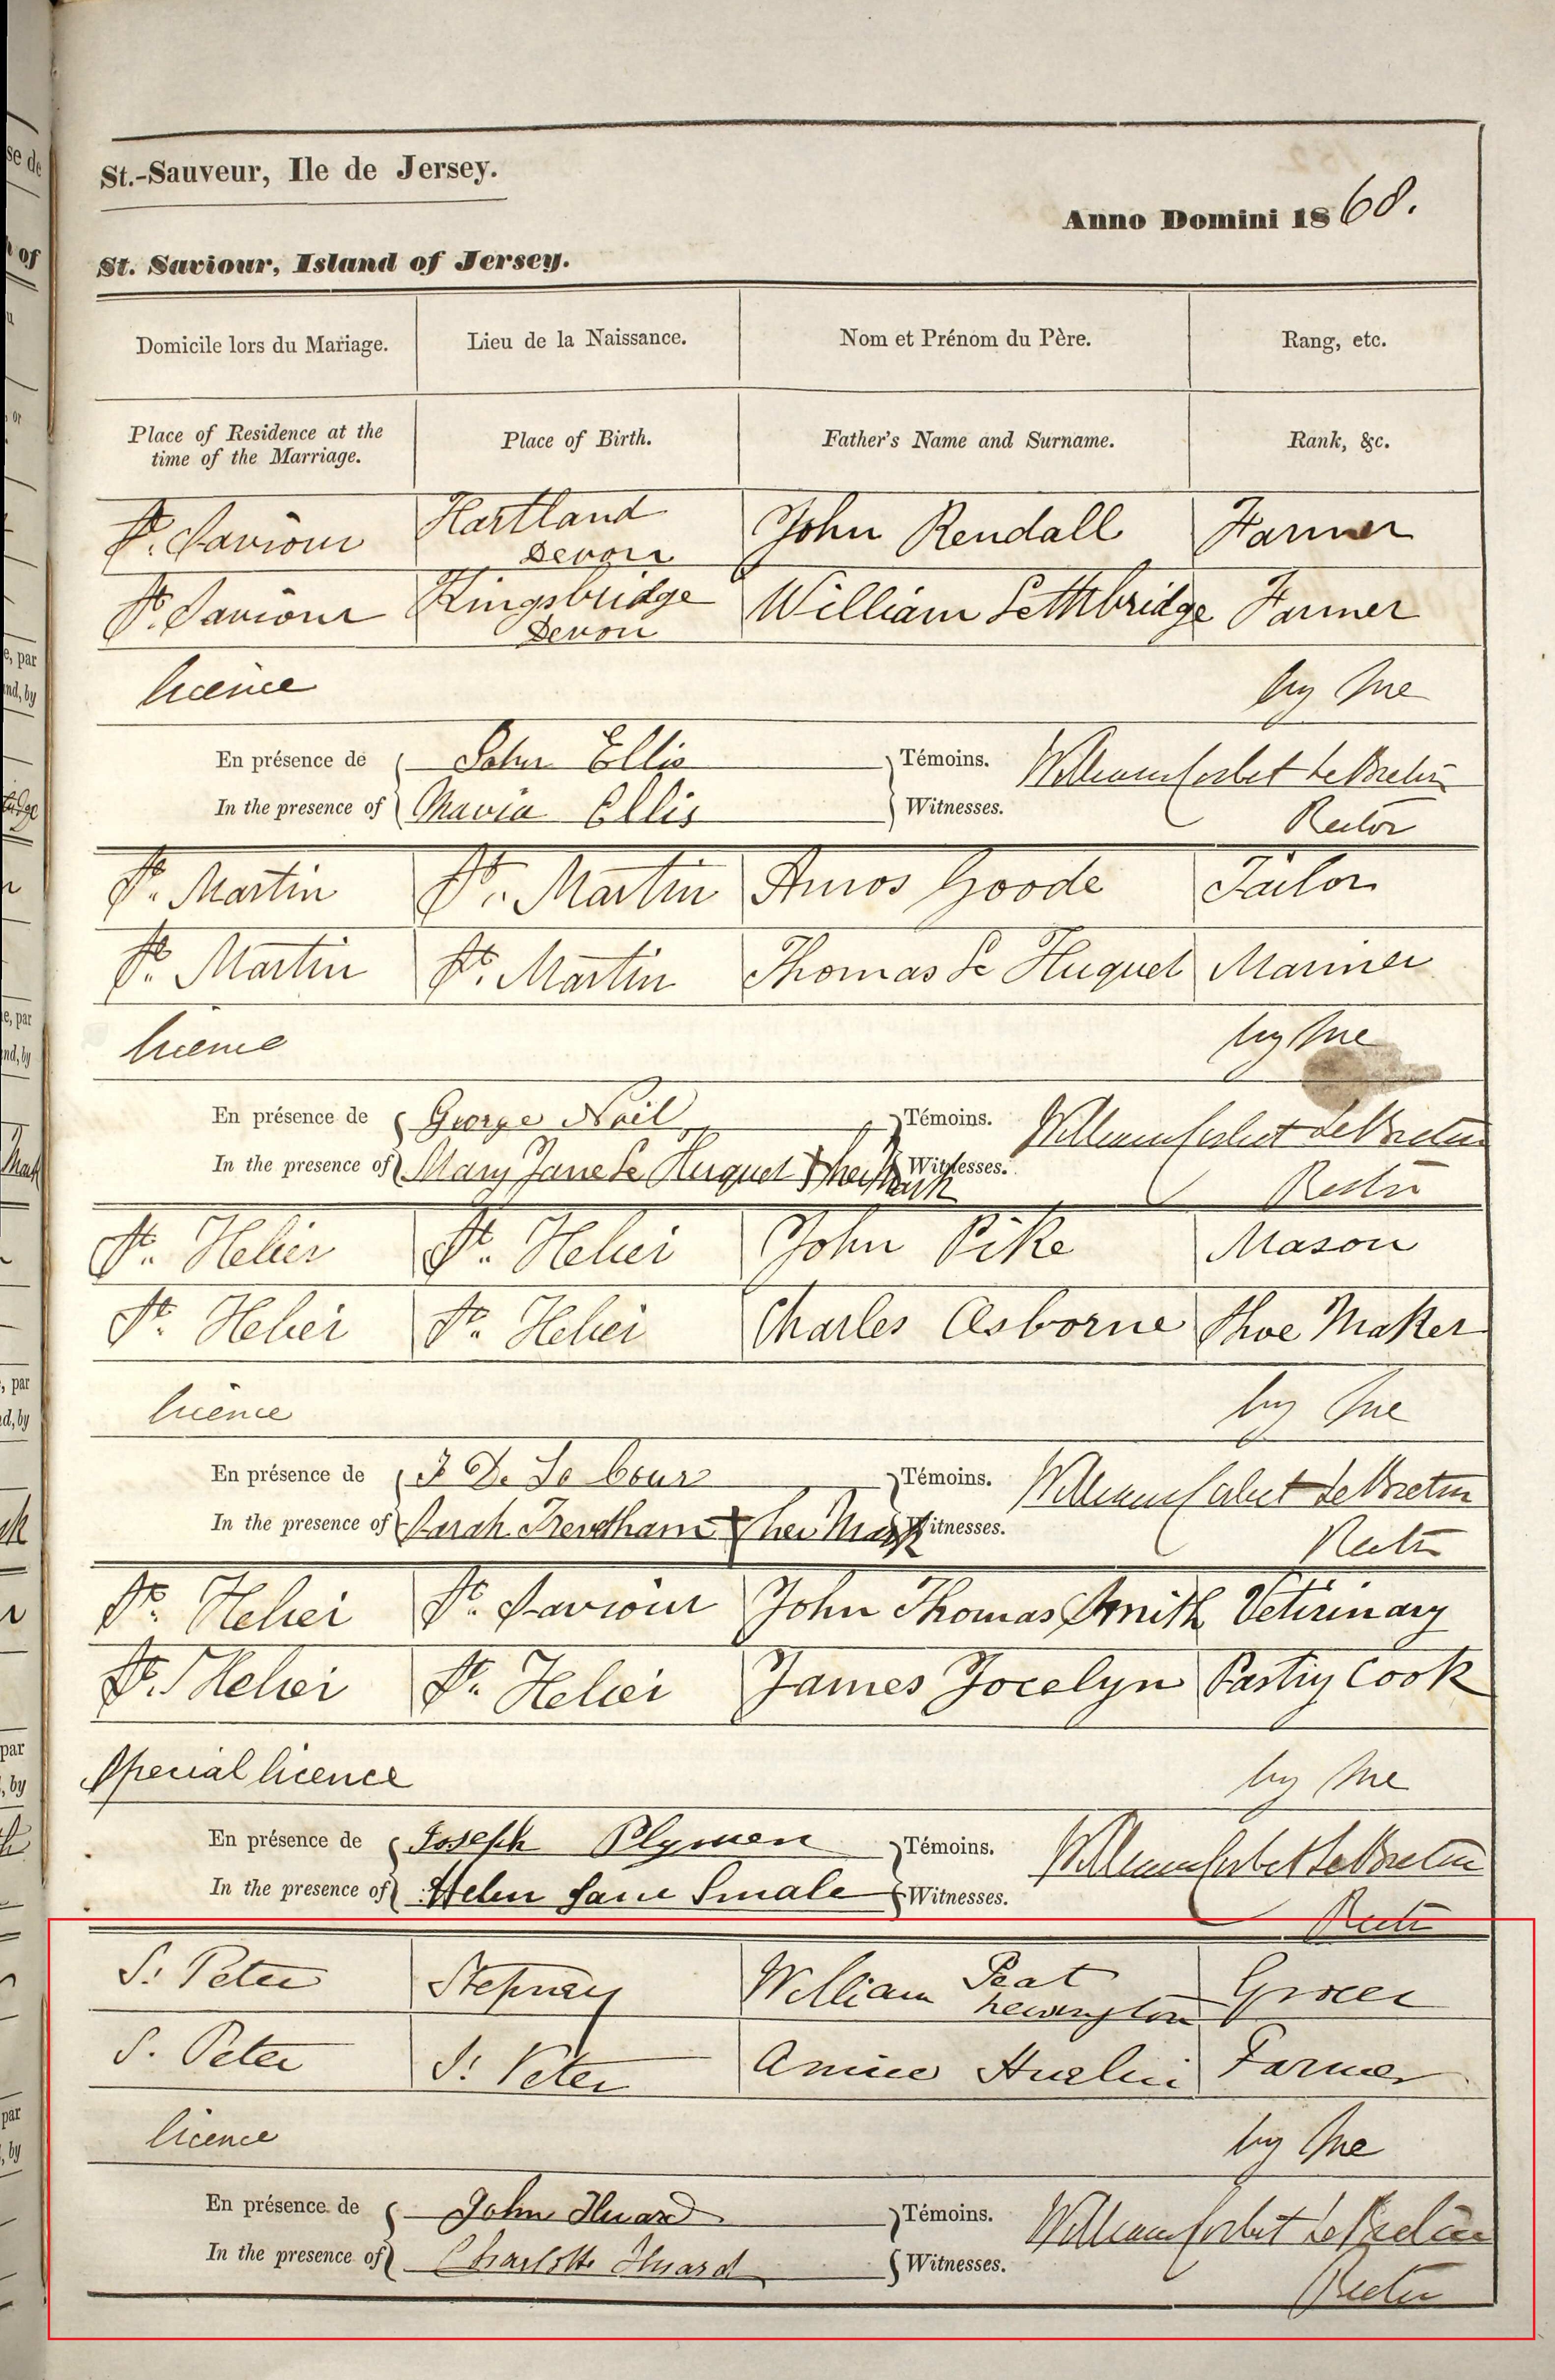 St.-Sauveur, Ile de Jersey.
Anno Domini 1868.
St. Saviour, Island of Jersey.
Domicile lors du Mariage. Lieu de la Naissance. Nom et Prénom du Père. Rang, etc.
Place of Residence at the time of the Marriage. Place of Birth. Father's Name and Surname. Rank, &c.
St. Saviour Hartland Devon John Rendall Farmer
St. Saviour Kingsbridge Devon William Lethbridge Farmer
licence by me
En présence de John Ellis Témoins. William Corbet Le Breton
In the presence of Maria Ellis Witnesses. Rector
St. Martin St. Martin Amos Goode Tailor
St. Martin St. Martin Thomas Le Huquet Mariner
licence by me
En présence de George Noil Témoins. William Corbet Le Breton
In the presence of Mary Jane Le Huquet X her mark Witnesses. Rector
St. Helier St. Helier John Pike Mason
St. Helier St. Helier Charles Osborne Shoe Maker
licence by me
En présence de J D. Le Cour Témoins. William Corbet Le Breton
In the presence of Sarah Trendham X her Mark Witnesses. Rector
St. Helier St. Saviour John Thomas Smith Veterinary
St. Helier St. Helier James Jocelyn Pastry Cook
Special licence by me
En présence de Joseph Plymen Témoins. William Corbet Le Breton
In the presence of Helen Jane Smale Witnesses. Rector
St Peter Stepney William Peat Lewington Grocer
S. Peter St Peter Amice Huelin Farmer
licence by me
En présence de John Huard Témoins. William Corbet Le Breton
In the presence of Charlotte Huard Witnesses. Rector